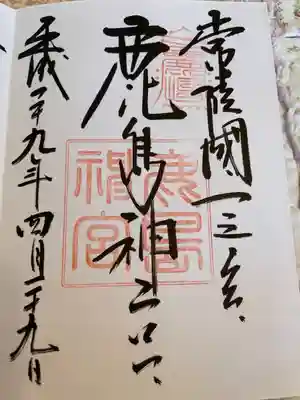 常陸國一之宮
鹿島神宮
平成二十九年四月二十九日
鹿島
神宮